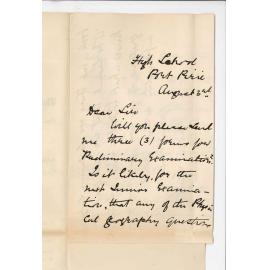 High School
Port Pirie
August 3rd
Dear Sir
Will you please send
me three (3) forms for
Preliminary Examination.
Is it likely, for the
next Junior Examina-
tion, that any of the Physi-
cal Geography Question